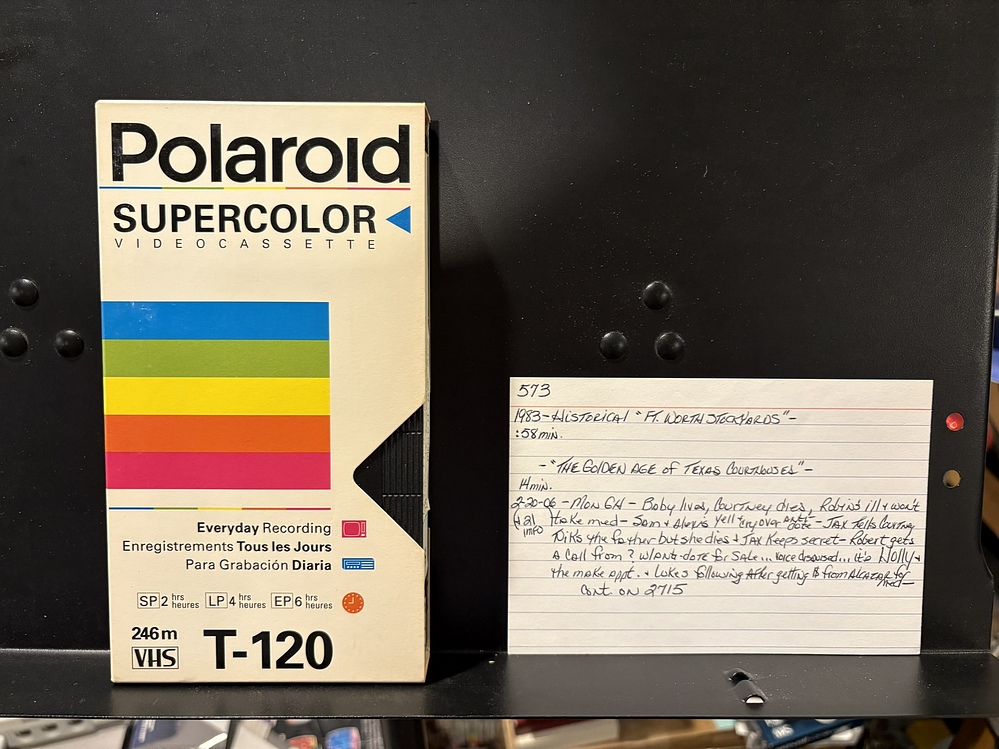 Polaroid
SUPERCOLOR
VIDEOCASSETTE
Everyday Recording
Enregistrements Tous les Jours
Para Grabación Diaria
SP 2 hrs heures LP 4 hrs heures EP 6 hrs heures
246 m
VHS T-120
573
1983-HISTORICAL "FT. WORTH STOCKYARDS"-
:58 min.
-"THE GOLDEN AGE OF TEXAS COURTHOUSES"-
14 min.
2-20-06 - Mon GH - Baby lives, Courtney dies, Robin's ill + won't
take med - Sam + Alexis yell + cry over - JAX tells Courtney
info
Nik's the father but she dies + JAX Keeps secret - Robert gets
a call from ? w/anti-dote for sale... voice disguised... it's Holly +
the make appt. + Luke's following after getting $ from ALCAZAR for
med-
Cont. on 2715